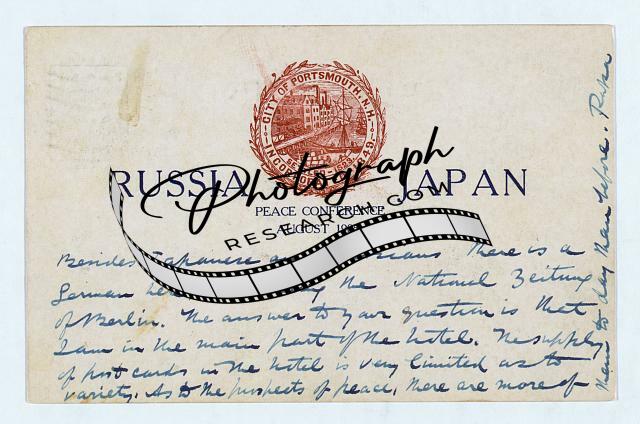 CITY OF PORTSMOUTH, N.H.
INCORPORATED 1849
RUSSIA JAPAN
PEACE CONFERENCE
AUGUST
Photograph
RESEARCH.COM
Besides Japanese There is a
German the National Zeitung
of Berlin. The answer to your question is that
I am in the main part of the hotel. The supply
of post cards in the hotel is very limited as to
variety. As to the prospects of peace, there are more of
them to day than before.